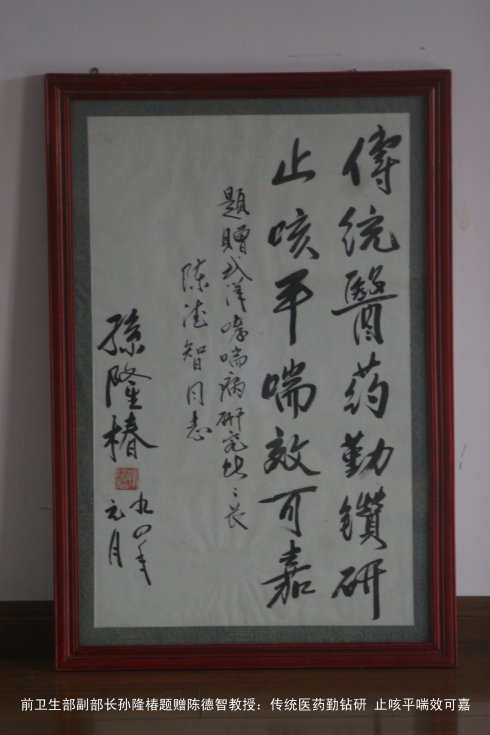 傳统醫药勤鑽研
止咳平喘效可嘉
题赠武洋哮喘病研究所所长
陈德智同志
孫隆椿
九四年
元月
前卫生部副部长孙隆椿题赠陈德智教授：传统医药勤钻研 止咳平喘效可嘉